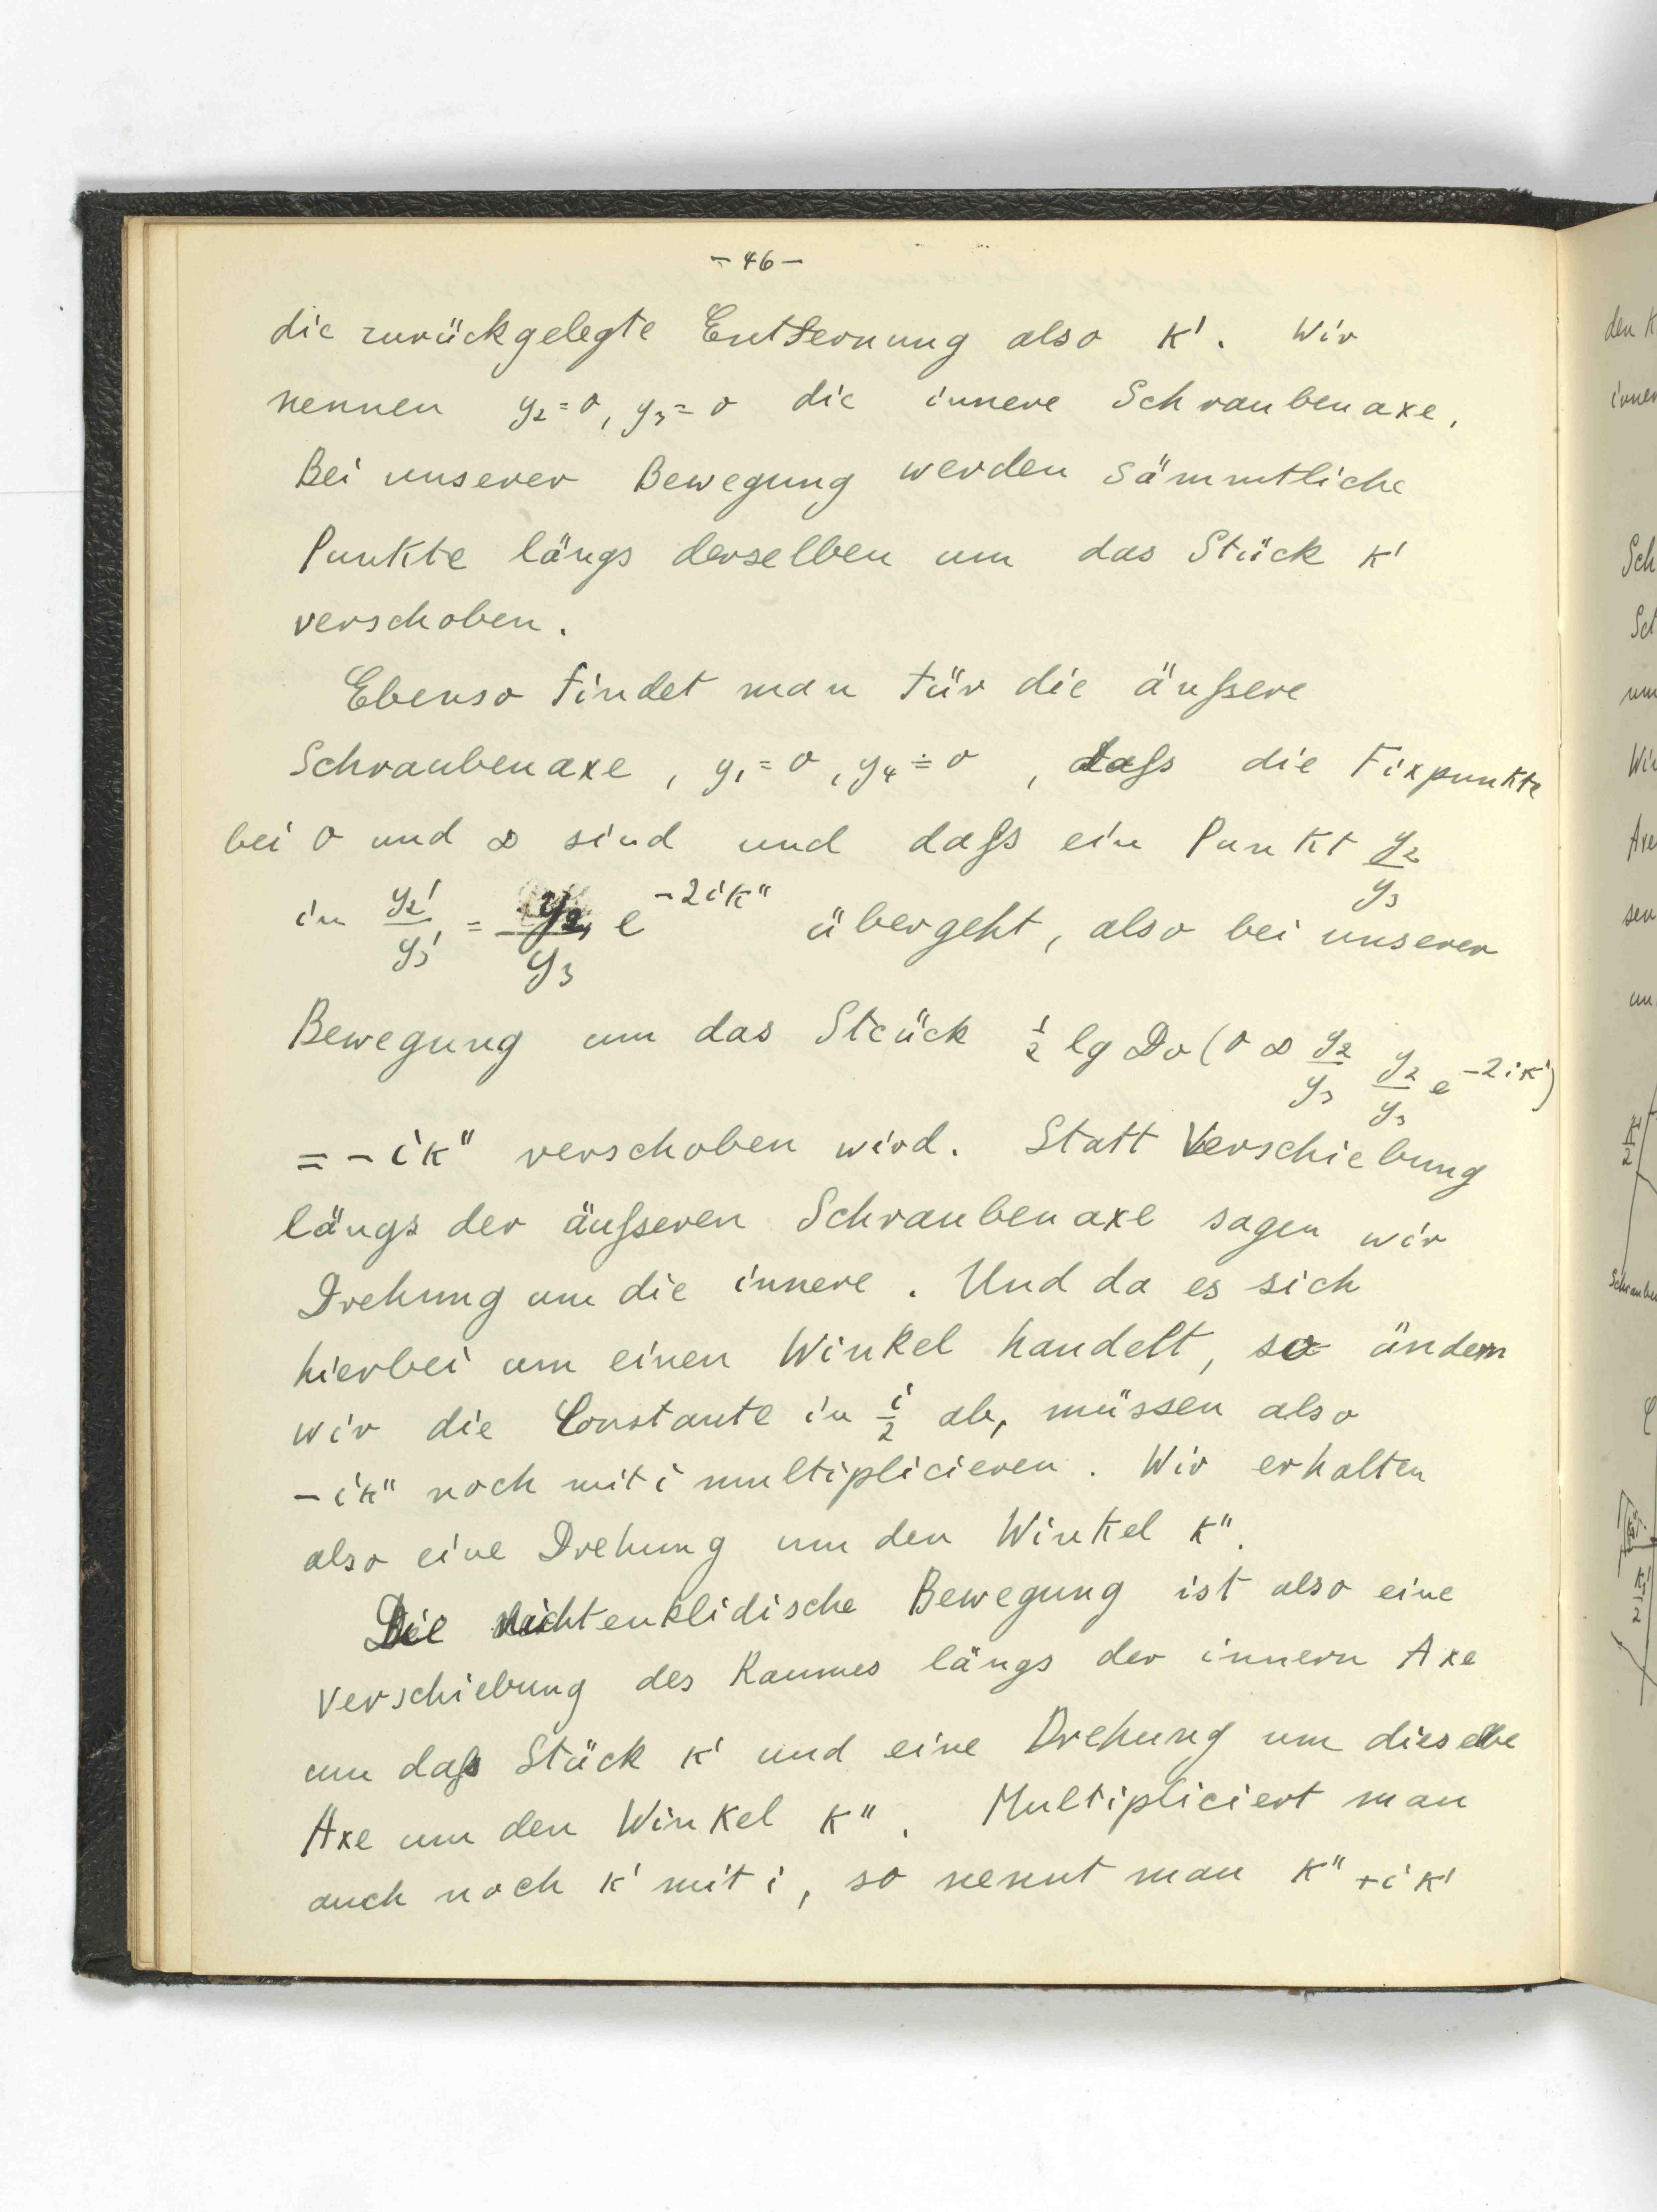 - 46 -
die zurückgelegte Entfernung also κ'. Wir
nennen y₂ = 0, y₃ = 0 die innere Schraubenaxe,
Bei unserer Bewegung werden sämmtliche
Punkte längs derselben um das Stück κ'
verschoben.
Ebenso findet man für die äußere
Schraubenaxe, y₁ = 0, y₄ = 0, daß die Fixpunkte
bei 0 und ∞ sind und daß ein Punkt y₂/y₃
in y₂'/y₃' = y₂/y₃ e^(-2iκ'') übergeht, also bei unserer
Bewegung um das Stück ½ lg Dv (0 ∞ y₂/y₃ y₂/y₃ e^(-2iκ'))
= - iκ'' verschoben wird. Statt Verschiebung
längs der äußeren Schraubenaxe sagen wir
Drehung um die innere. Und da es sich
hierbei um einen Winkel handelt, so ändern
wir die Constante in i/2 ab, müssen also
- iκ'' noch mit i multiplicieren. Wir erhalten
also eine Drehung um den Winkel κ''.
Die nichteuklidische Bewegung ist also eine
Verschiebung des Raumes längs der innern Axe
um daß Stück κ' und eine Drehung um dieselbe
Axe um den Winkel κ''. Multipliciert man
auch noch κ' mit i, so nennt man κ'' + iκ'
den K
inner
Sch
Sch
um
Wir
Axe
sen
un
κ'/2
Schrauben
κ'/2